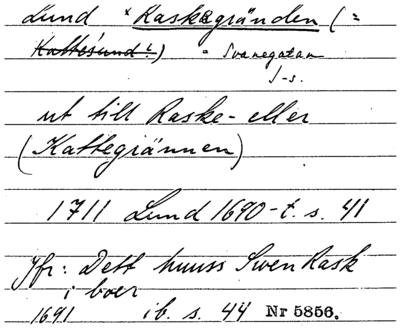 Lund × Raskegränden (=
Kattesund?) = Svanegatan
J-s.
ut till Raske- eller
(Kattegrännen)
1711 Lund 1690-t. s. 41
Jfr: Dett huuss Swen Rask
i boer
1691 ib. s. 44 Nr 5856.